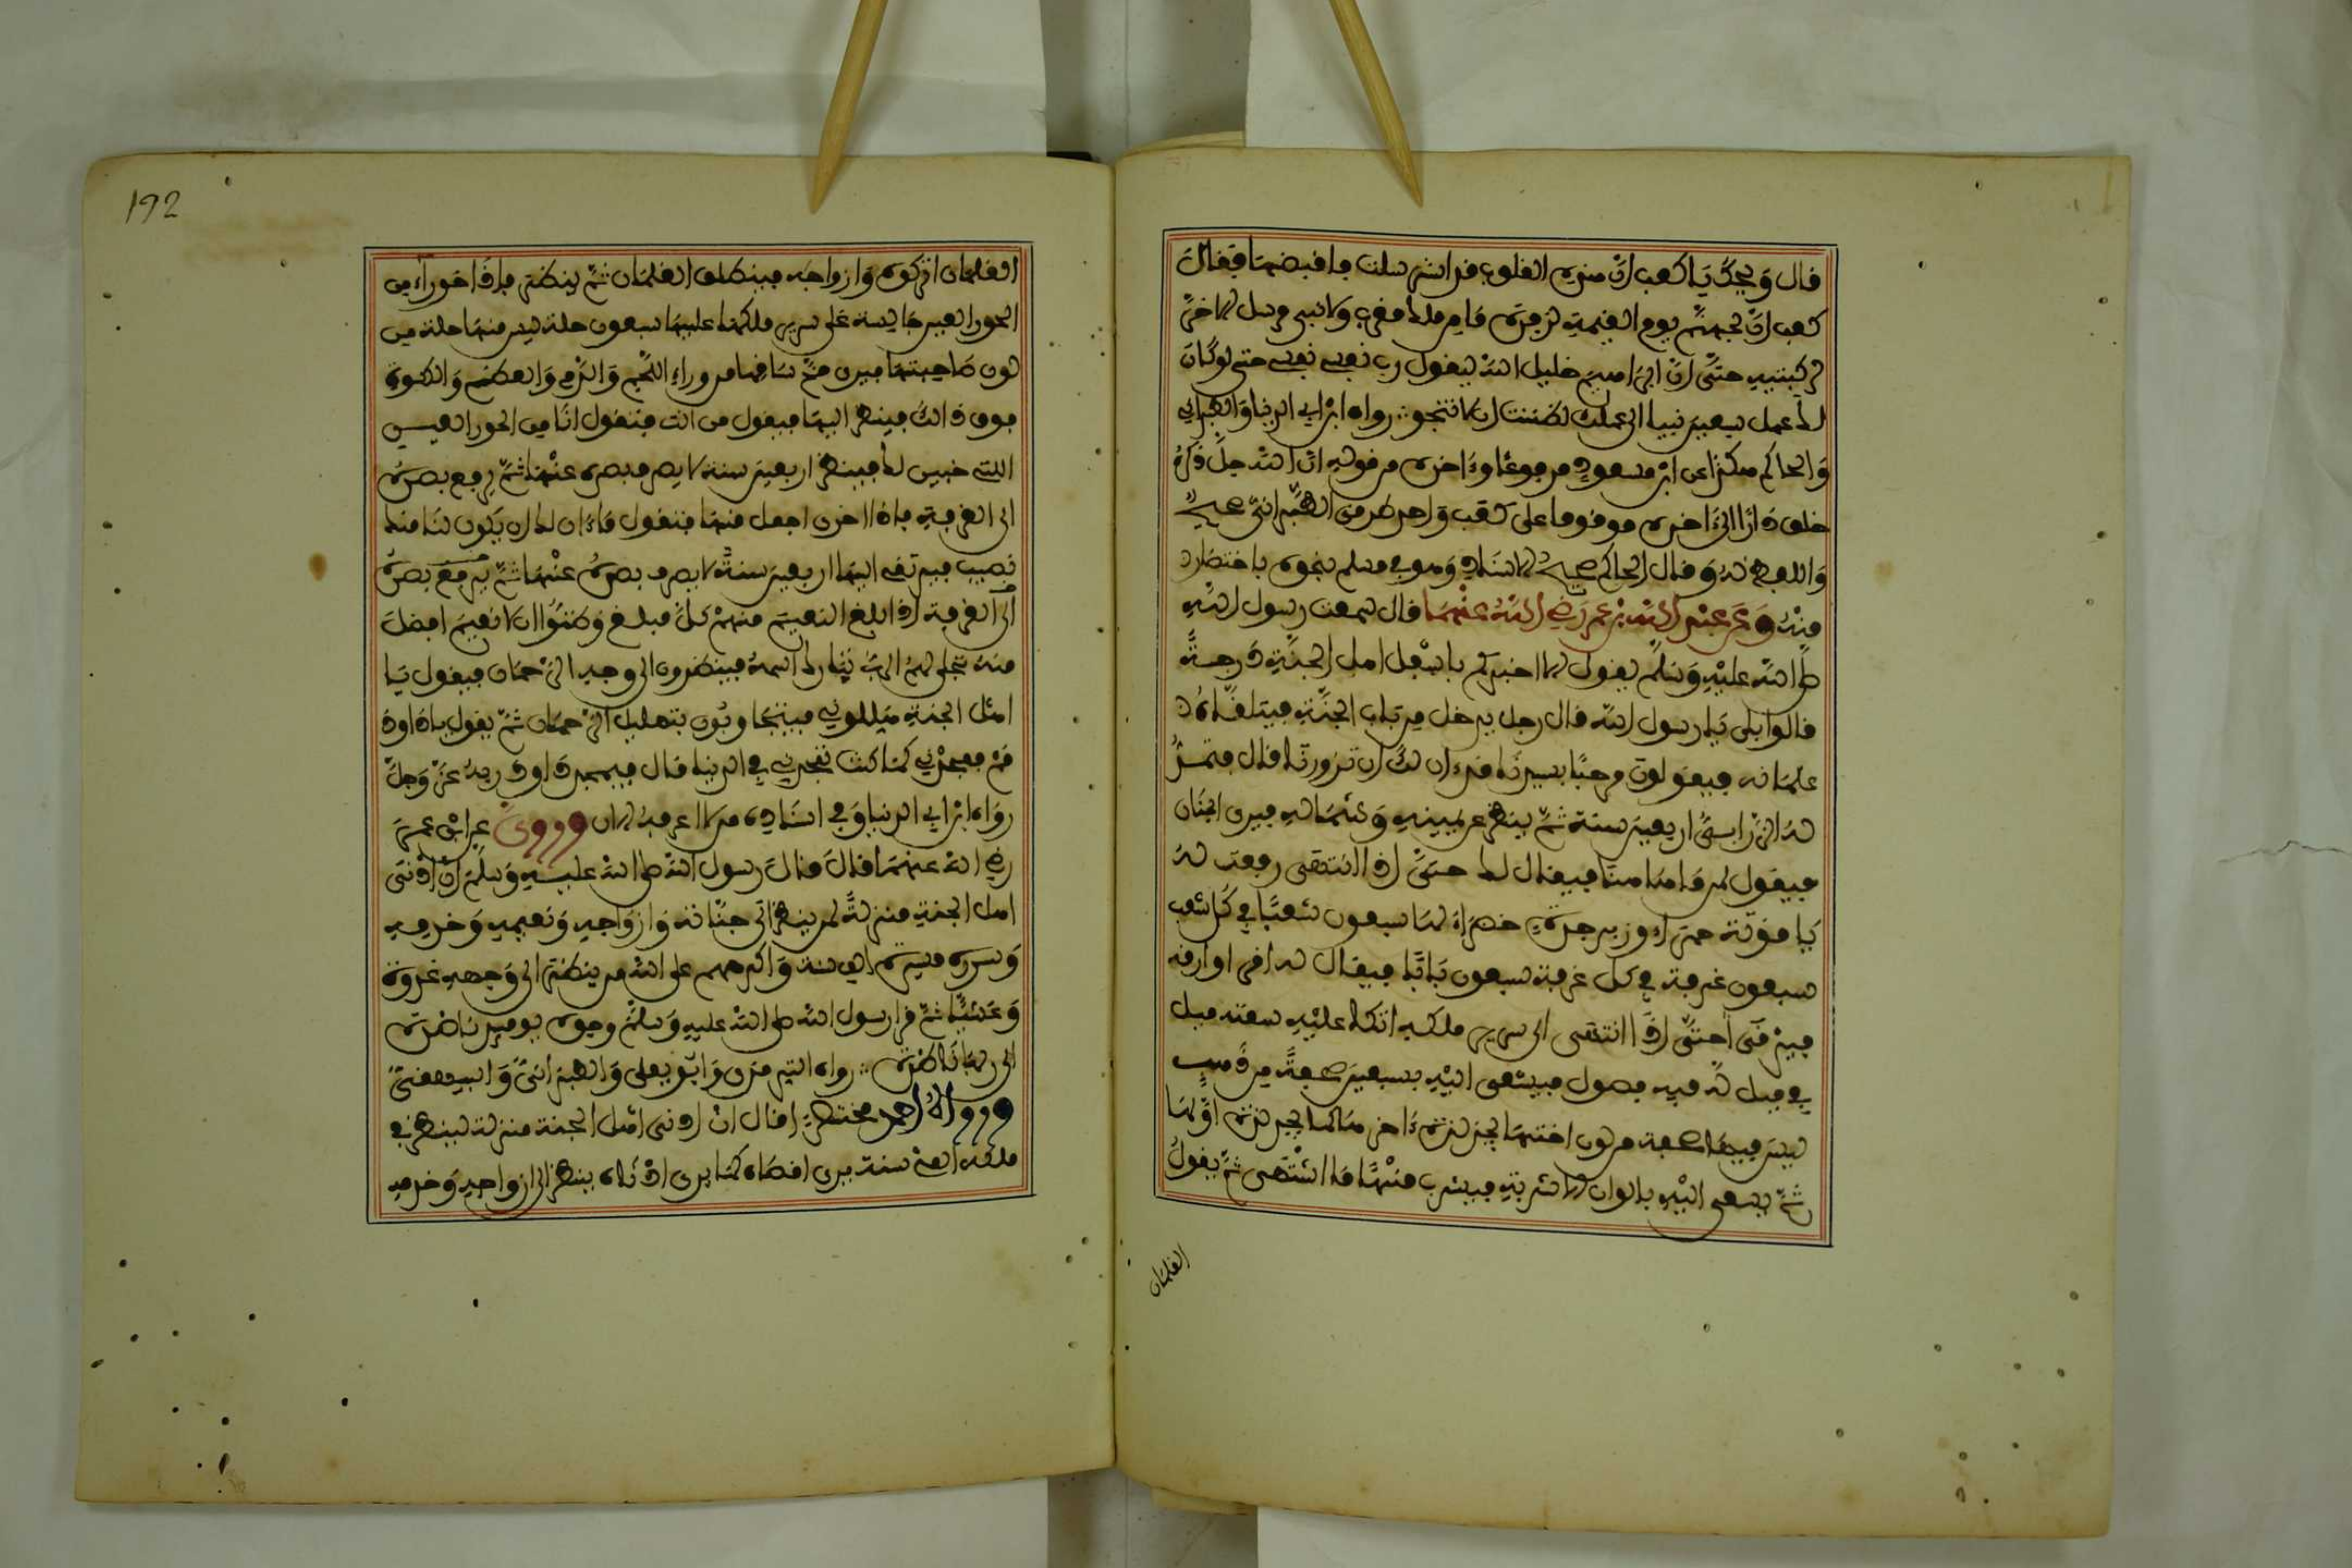 قال ويحك يا كعب إن هذه القلوب قد استرسلت فاقبضها فقال
كعب إن لجهنم يوم القيمة لزفرة ما من ملك مقرب ولا نبي مرسل الا خر
لركبتيه حتى إن ابراهيم خليل الله ليقول رب نفسي نفسي حتى لو كان
لك عمل سبعين نبيا الى عملك لظننت ان لا تنجو رواه ابن أبي الدنيا والطبراني
والحاكم هكذا عن ابن مسعود مرفوعا وءاخره من قوله ان الله جل ذكره
خلق دارا الى ءاخره موقوفا على كعب واحد طرق الطبراني صحيح
واللفظ له وقال الحاكم صحيح الاسناد وهو في مسلم بنحوه باختصار
منه وعن عبد الله بن عمر رضي الله عنهما قال سمعت رسول الله
صلى الله عليه وسلم يقول الا اخبركم باسفل اهل الجنة درجة
قالوا بلى يا رسول الله قال رجل يدخل من باب الجنة فيتلقاه
غلمانه فيقولون مرحبا بسيدنا قد ءان لك ان تزورنا قال فتمد
له الزرابي اربعين سنة ثم ينظر عن يمينه وشماله فيرى الجنان
فيقول لمن ما هاهنا فيقال لك حتى إذا انتهى رفعت له
ياقوتة حمراء وزبرجدة خضراء لها سبعون شعبا في كل شعب
سبعون غرفة في كل غرفة سبعون بابا فيقال له اقرا وارقه
فيرقى حتى إذا انتهى الى سرير ملكه اتكا عليه سعته ميل
في ميل له فيه فصول فيسعى اليه بسبعين صحفة من ذهب
ليس فيها صحفة من لون اختها يجد لذة ءاخرها كما يجد لذة أولها
ثم يسعى اليه بالوان الاشربة فيشرب منها ما اشتهى ثم يقول
الغلمان
192
الغلمان اتركوه وازواجه فينطلق الغلمان ثم ينظر فإذا حوراء من
الحور العين جالسة على سرير ملكها عليها سبعون حلة ليس منها حلة من
لون صاحبتها فيرى مخ ساقها من وراء اللحم والدم والعظم والكسوة
فوق ذالك فينظر اليها فيقول من انت فتقول انا من الحور العين
اللتي خبين لك فينظر اربعين سنة لا يصرف بصره عنها ثم يرفع بصره
الى الغرفة فاذا اخرى اجمل منها فتقول ماءان لك ان يكون لنا منك
نصيب فيرتقي اليها اربعين سنة لا يصرف بصره عنها ثم يرفع بصره
الى الغرفة إذا بلغ النعيم منهم كل مبلغ وظنوا ان لا نعيم افضل
منه تجلى لهم الرب تبارك اسمه فينظرون الى وجه الرحمان فيقول يا
اهل الجنة هللوني فيتجاوبون بتهليل الرحمان ثم يقول يا داود
قم فمجدني كما كنت تمجدني في الدنيا قال فيمجد داود ربه عز وجل
رواه ابن أبي الدنيا وفي اسناده من لا اعرفه الان وروي عن ابن عمر
رضي الله عنهما قال قال رسول الله صلى الله عليه وسلم إن أدنى
اهل الجنة منزلة لمن ينظر الى جنانه وازواجه ونعيمه وخدمه
وسرره مسيرة الف سنة واكرمهم على الله من ينظر الى وجهه غدوة
وعشيا ثم قرأ رسول الله صلى الله عليه وسلم وجوه يومئذ ناضرة
الى ربها ناظرة رواه الترمذي وابو يعلى والطبراني والبيهقي
ورواه احمد مختصرا قال ان ادنى اهل الجنة منزلة لينظر في
ملكه الف سنة يرى اقصاه كما يرى ادناه ينظر الى ازواجه وخدمه